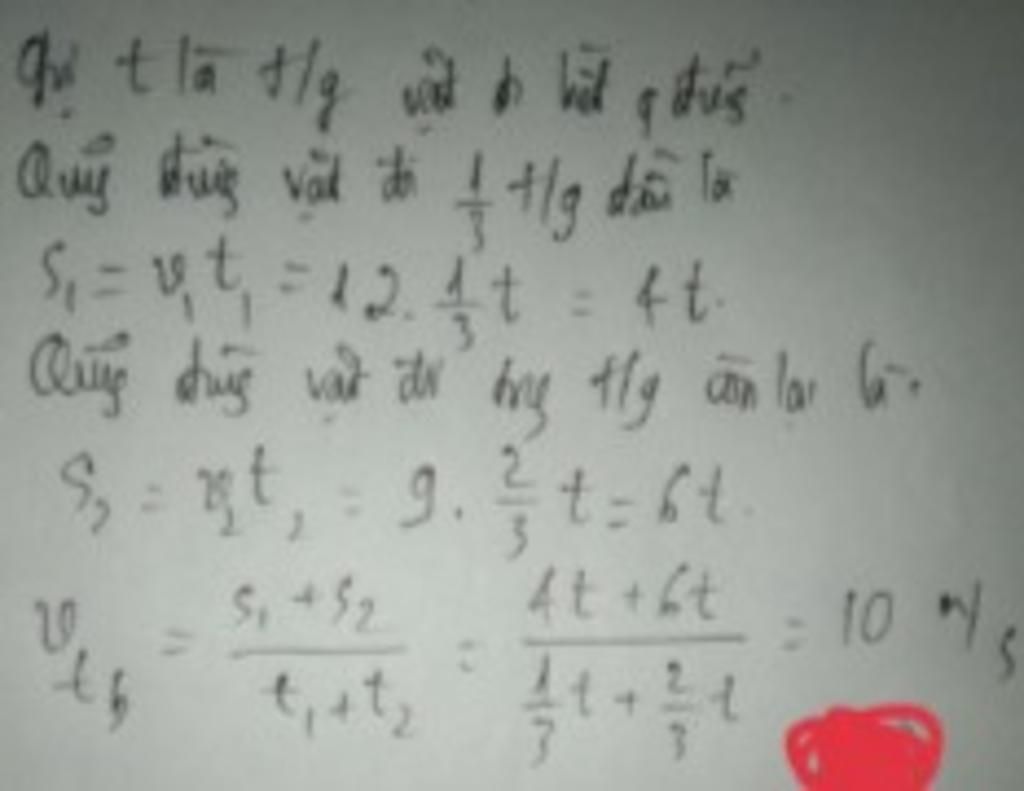 Gọi t là t/g vật đi hết q đường.
Quãng đường vật đi 1/3 t/g đầu là
S₁ = v₁t₁ = 12. 1/3 t = 4t.
Quãng đường vật đi trong t/g còn lại là.
S₂ = v₂t₂ = 9. 2/3 t = 6t.
v_tb = (S₁ + S₂)/(t₁ + t₂) = (4t + 6t)/(1/3 t + 2/3 t) = 10 m/s